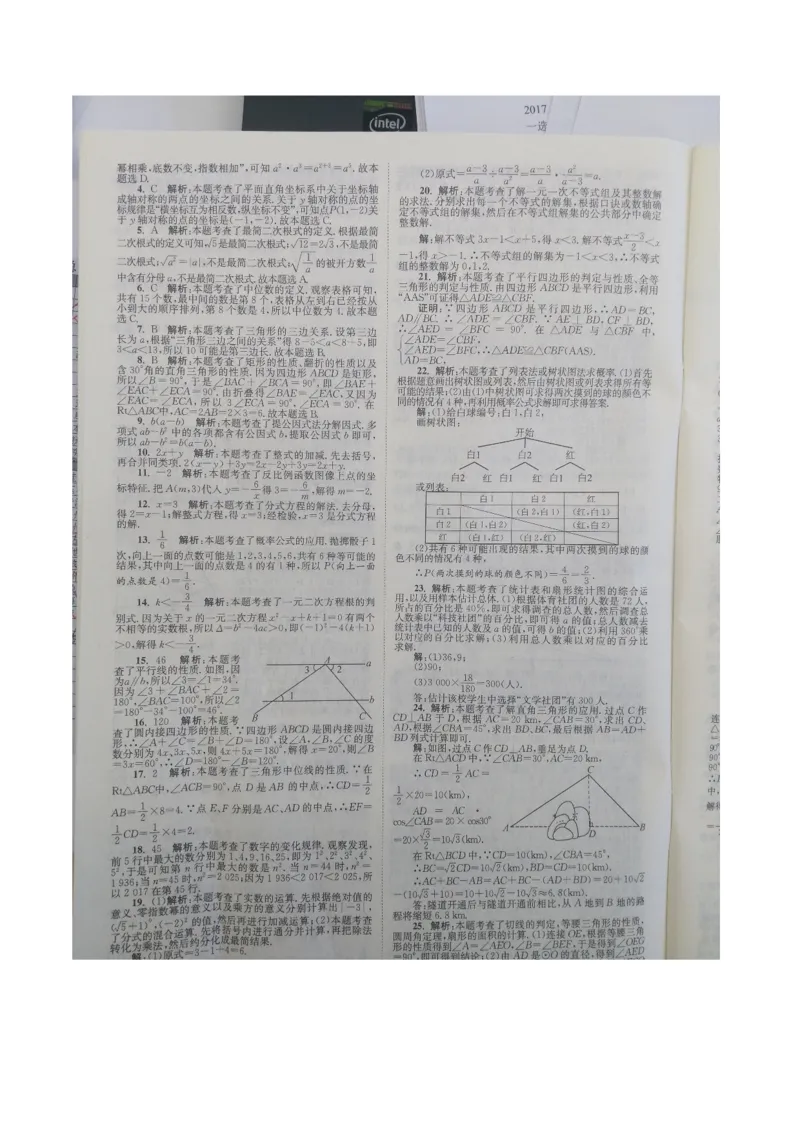 intel
2017
一选
幂相乘,底数不变,指数相加”,可知 a²·a³=a²⁺³=a⁵. 故本
题选 D.
4. C 解析:本题考查了平面直角坐标系中关于坐标轴
成轴对称的两点的坐标之间的关系. 关于 y 轴对称的点的坐
标规律是“横坐标互为相反数,纵坐标不变”,可知点P(1,-2)关
于 y 轴对称的点的坐标是(-1,-2). 故本题选 C.
5. A 解析:本题考查了最简二次根式的定义. 根据最简
二次根式的定义可知,√5是最简二次根式;√12=2√3,不是最简
二次根式;√a²=|a|,不是最简二次根式;√(1/a) 的被开方数 1/a
中含有分母 a,不是最简二次根式.故本题选 A.
6. C 解析:本题考查了中位数的定义. 观察表格可知,
共有 15 个数,最中间的数是第 8 个,表格从左到右已经按从
小到大的顺序排列,第 8 个数是 4,所以中位数为 4. 故本题
选 C.
7. B 解析:本题考查了三角形的三边关系. 设第三边
长为 a,根据“三角形三边之间的关系”得 8-5<a<8+5,即
3<a<13,所以 10 可能是第三边长. 故本题选 B.
8. B 解析:本题考查了矩形的性质、翻折的性质以及
含 30°角的直角三角形的性质. 因为四边形 ABCD 是矩形,
所以∠B=90°,于是∠BAC+∠BCA=90°,即∠BAE+
∠EAC+∠ECA=90°. 由折叠得∠BAE=∠EAC,又因为
∠EAC=∠ECA,所以 3∠ECA=90°,∠ECA=30°. 在
Rt△ABC中,AC=2AB=2×3=6. 故本题选 B.
9. b(a-b) 解析:本题考查了提公因式法分解因式. 多
项式 ab-b² 中的各项都含有公因式 b,提取公因式 b 即可,
所以 ab-b²=b(a-b).
10. 2x+y 解析:本题考查了整式的加减. 先去括号,
再合并同类项. 2(x-y)+3y=2x-2y+3y=2x+y.
11. -2 解析:本题考查了反比例函数图像上点的坐
标特征. 把 A(m,3)代入 y=-6/x 得 3=-6/m,解得 m=-2.
12. x=3 解析:本题考查了分式方程的解法. 去分母,
得 2=x-1;解整式方程,得 x=3;经检验,x=3 是分式方程
的解.
13. 1/6 解析:本题考查了概率公式的应用. 抛掷骰子 1
次,向上一面的点数可能是 1,2,3,4,5,6,共有 6 种等可能的
结果,其中向上一面的点数是 4 的有 1 种,所以 P(向上一面
的点数是 4)=1/6.
14. k<-3/4 解析:本题考查了一元二次方程根的判
别式. 因为关于 x 的一元二次方程 x²-x+k+1=0 有两个
不相等的实数根,所以 Δ=b²-4ac>0,即(-1)²-4(k+1)
>0,解得 k<-3/4.
15. 46 解析:本题考
查了平行线的性质. 如图,因
为a∥b,所以∠3=∠1=34°.
因为∠3+∠BAC+∠2=
180°,∠BAC=100°,所以∠2
=180°-34°-100°=46°.
A
a
3
2
1
b
B
C
16. 120 解析:本题考
查了圆内接四边形的性质. ∵四边形 ABCD 是圆内接四边
形,∴∠A+∠C=∠B+∠D=180°,设∠A,∠B,∠C 的度
数分别为 4x、3x、5x,则 4x+5x=180°,解得 x=20°,则∠B
=3x=60°,∴∠D=180°-∠B=120°.
17. 2 解析:本题考查了三角形中位线的性质. ∵在
Rt△ABC中,∠ACB=90°,点 D 是 AB 的中点,∴CD=1/2
AB=1/2×8=4. ∵点 E、F 分别是 AC、AD 的中点,∴EF=
1/2CD=1/2×4=2.
18. 45 解析:本题考查了数字的变化规律. 观察发现,
前 5 行中最大的数分别为 1、4、9、16、25,即为 1²、2²、3²、4²、
5²,于是可知第 n 行中最大的数是 n². 当 n=44 时,n²=
1 936;当 n=45 时,n²=2 025;因为 1 936<2 017<2 025,所
以 2 017 在第 45 行.
19. (1)解析:本题考查了实数的运算. 先根据绝对值的
意义、零指数幂的意义以及乘方的意义分别计算出|-3|,
(√5+1)⁰,(-2)² 的值,然后再进行加减运算;(2)本题考查
了分式的混合运算. 先将括号内进行通分并计算,再把除法
转化为乘法,然后约分化成最简结果.
解:(1)原式=3-1+4=6.
(2)原式=(a-3)/a÷(a-3)/a²=(a-3)/a·a²/(a-3)=a.
20. 解析:本题考查了解一元一次不等式组及其整数解
的求法. 分别求出每一个不等式的解集,根据口诀或数轴确
定不等式组的解集,然后在不等式组解集的公共部分中确定
整数解.
解:解不等式 3x-1<x+5,得 x<3. 解不等式 (x-3)/2<x
-1,得 x>-1. ∴不等式组的解集为-1<x<3,∴不等式
组的整数解为 0,1,2.
21. 解析:本题考查了平行四边形的判定与性质、全等
三角形的判定与性质. 由四边形 ABCD 是平行四边形,利用
“AAS”可证得△ADE≌△CBF.
证明:∵四边形 ABCD 是平行四边形,∴AD=BC,
AD∥BC. ∴∠ADE=∠CBF. ∵AE⊥BD,CF⊥BD,
∴∠AED=∠BFC=90°. 在△ADE 与△CBF 中,
∠ADE=∠CBF,
∠AED=∠BFC,∴△ADE≌△CBF(AAS).
AD=BC,
22. 解析:本题考查了列表法或树状图法求概率. (1)首先
根据题意画出树状图或列表,然后由树状图或列表求得所有等
可能的结果;(2)由(1)中树状图可求得两次摸到的球的颜色不
同的情况有 4 种,再利用概率公式求解即可求得答案.
解:(1)给白球编号:白 1,白 2,
画树状图:
开始
白1 白2 红
白2 红 白1 红 白1 白2
或列表:
白 1 白 2 红
白 1 (白 2,白 1) (红,白 1)
白 2 (白 1,白 2) (红,白 2)
红 (白 1,红) (白 2,红)
(2)共有 6 种可能出现的结果,其中两次摸到的球的颜
色不同的情况有 4 种,
∴P(两次摸到的球的颜色不同)=4/6=2/3.
23. 解析:本题考查了统计表和扇形统计图的综合运
用,以及用样本估计总体. (1)根据体育社团的人数是 72 人,
所占的百分比是 40%,即可求得调查的总人数,然后调查总
人数乘以“科技社团”的百分比,即可得 a 的值;总人数减去
统计表中已知的人数及 a 的值,可得 b 的值;(2)利用 360°乘
以对应的百分比求解;(3)利用总人数乘以对应的百分比
求解.
解:(1)36,9;
(2)90;
(3)3 000×18/180=300(人).
答:估计该校学生中选择“文学社团”有 300 人.
24. 解析:本题考查了解直角三角形的应用. 过点 C 作
CD⊥AB 于 D,根据 AC=20 km,∠CAB=30°,求出 CD、
AD,根据∠CBA=45°,求出 BD、BC,最后根据 AB=AD+
BD 列式计算即可.
解:如图,过点 C 作 CD⊥AB,垂足为点 D.
在 Rt△ACD中,∵∠CAB=30°,AC=20 km,
∴CD=1/2AC=
1/2×20=10(km),
AD=AC·
cos∠CAB=20×cos30°
=20×√3/2=10√3(km).
C
A
D
B
在 Rt△BCD 中,∵CD=10(km),∠CBA=45°,
∴BC=√2CD=10√2(km),BD=CD=10(km).
∴AC+BC-AB=AC+BC-(AD+BD)=20+10√2
-(10√3+10)=10+10√2-10√3≈6.8(km).
答:隧道开通后与隧道开通前相比,从 A 地到 B 地的路
程将缩短 6.8 km.
25. 解析:本题考查了切线的判定,等腰三角形的性质,
圆周角定理,扇形的面积的计算. (1)连接 OE,根据等腰三角
形的性质得到∠A=∠AEO,∠B=∠BEF,于是得到∠OEG
=90°,即可得到结论;(2)由 AD 是⊙O 的直径,得到∠AED